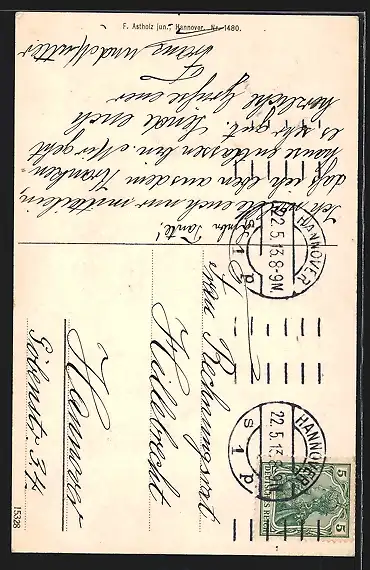 F. Astholz jun., Hannover. Nr. 1480.
Liebe Tante!
Ich will euch nur mitteilen,
daß ich eben aus dem Kranken
hause entlassen bin. Mir geht
es sehr gut. Sende euch
herzliche Grüße euer
Franz und Mutter
HANNOVER
22.5.13. 8-9N.
1 p
HANNOVER
22.5.13. 8-9N.
s 1 p
5 5
DEUTSCHES REICH
Frau Rechnungsrat
Hillebrecht
Hannover
15328